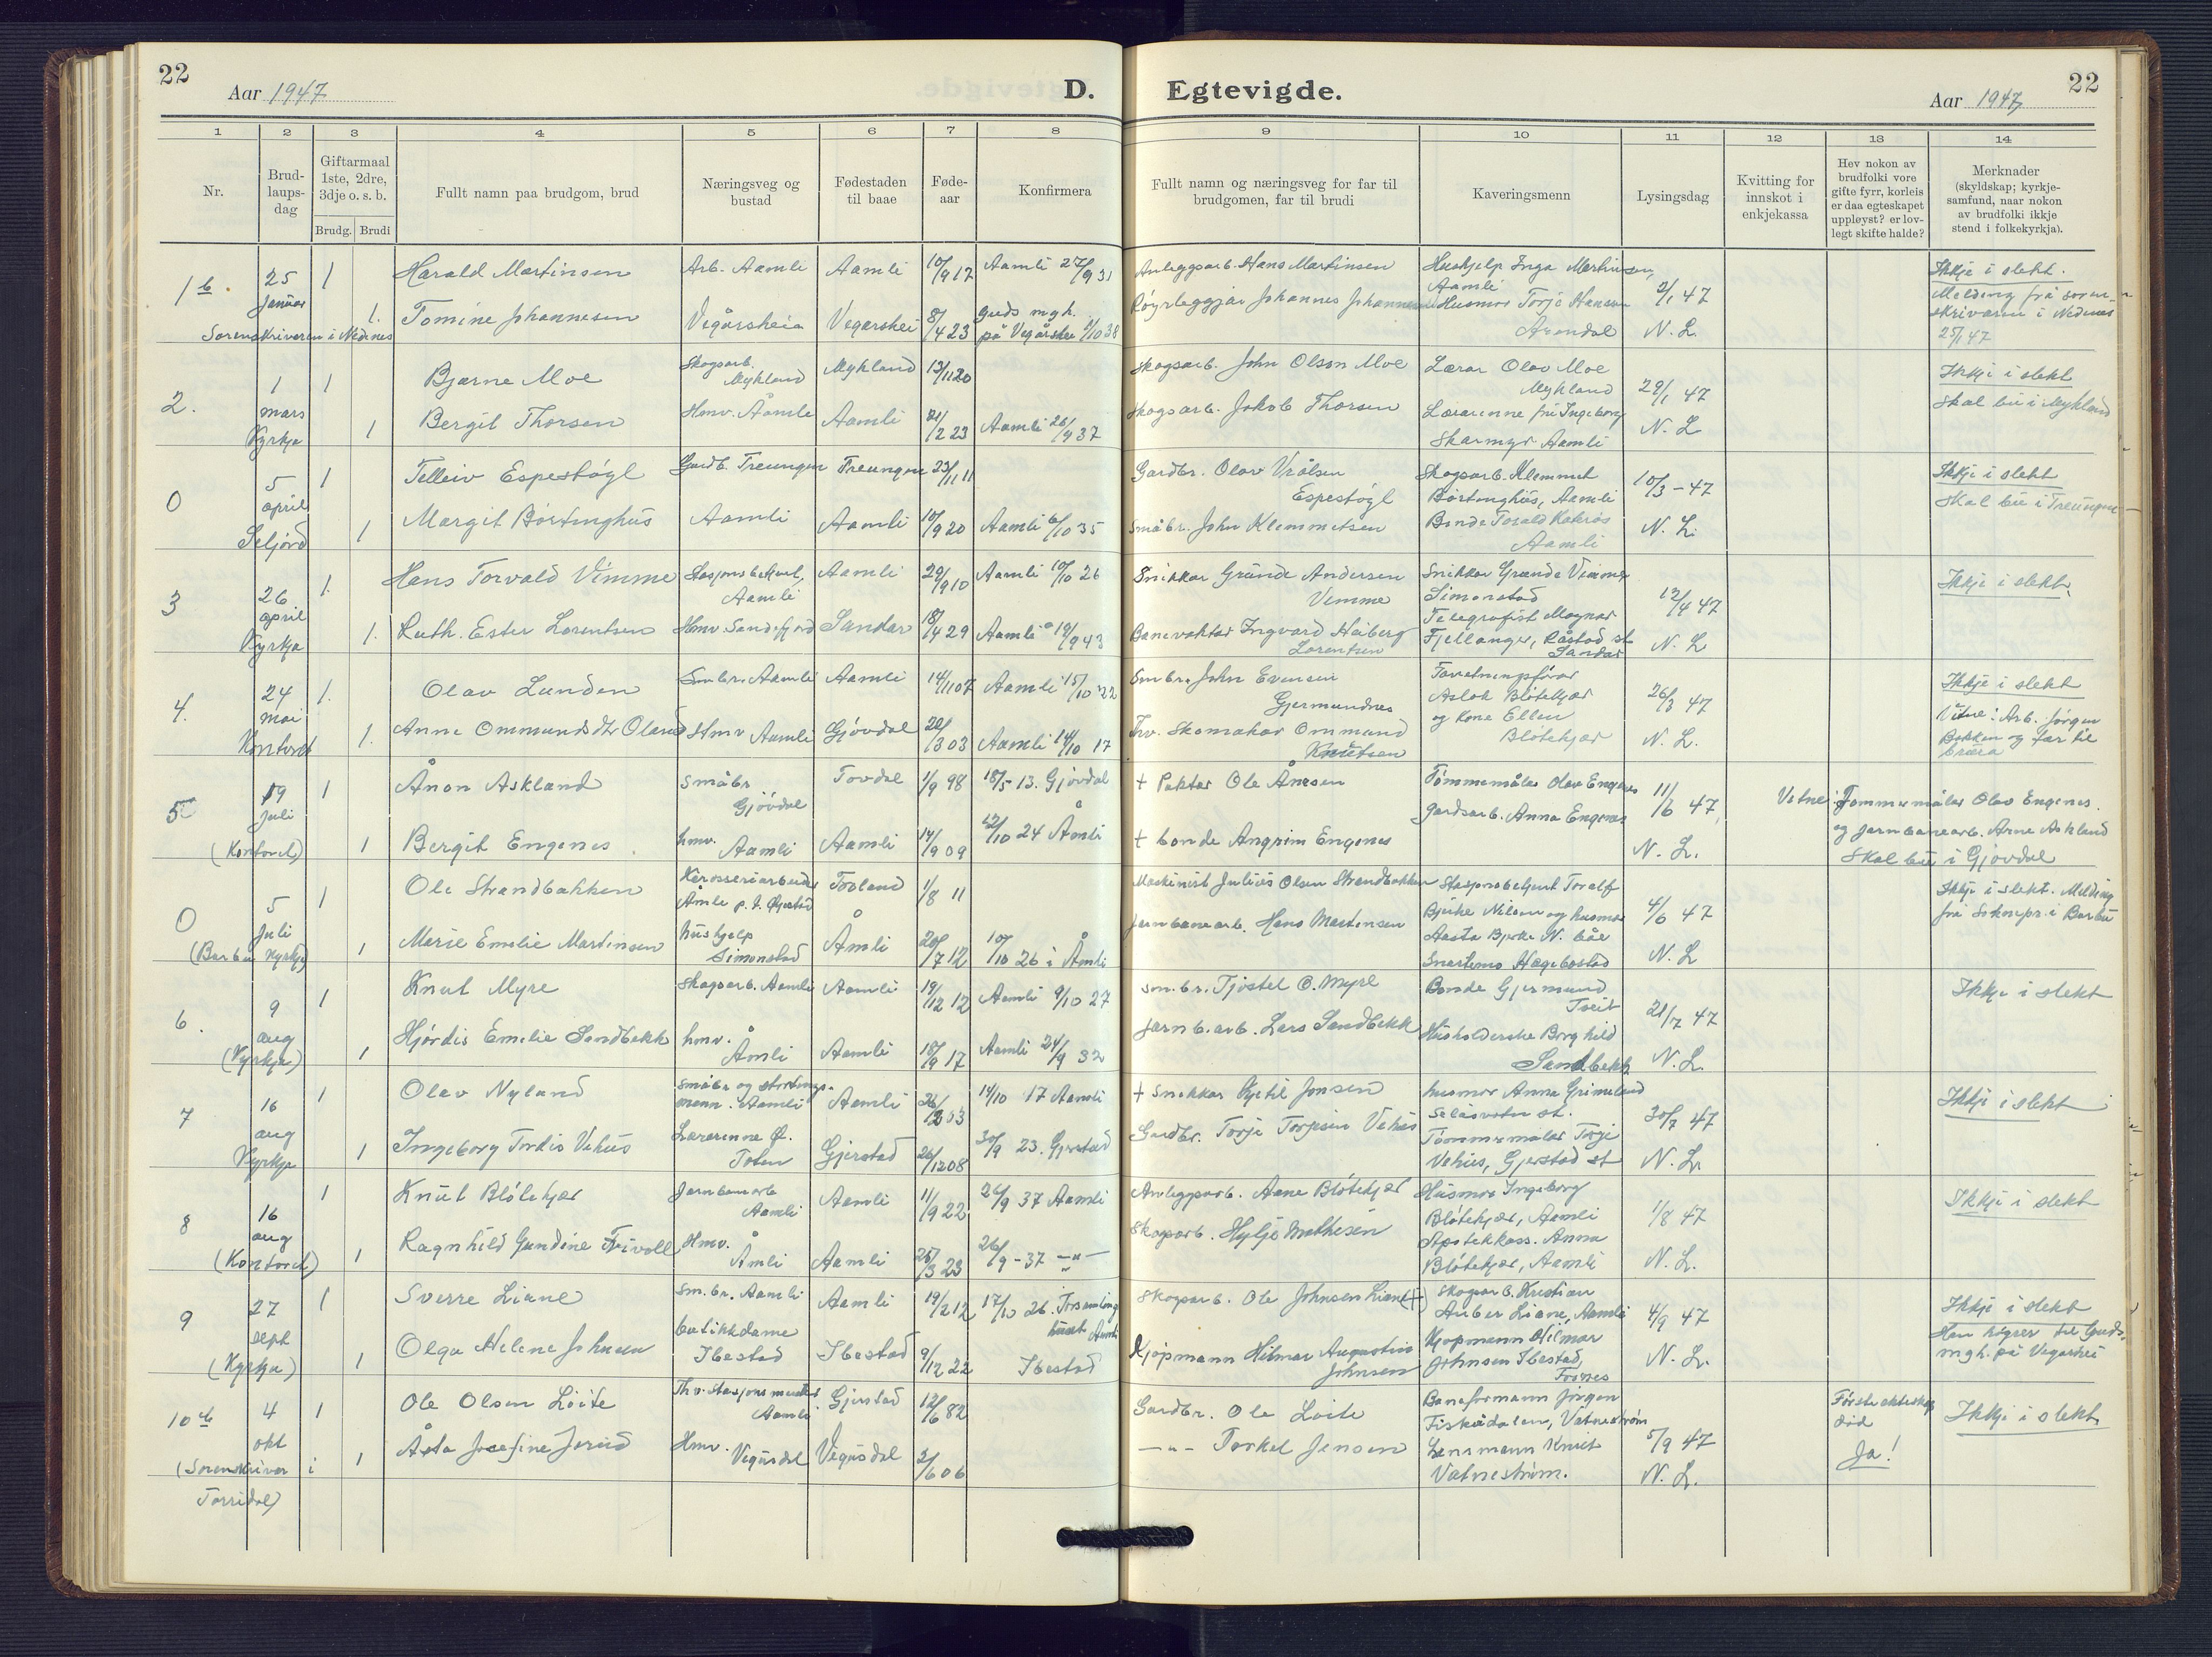 22
Aar 1947
D. Egtevigde.
Aar 1947
22
1 2 3 4 5 6 7 8 9 10 11 12 13 14
Nr.
Brud-
laups-
dag
Giftarmaal
1ste, 2dre,
3dje o. s. b.
Brudg. Brudi
Fullt namn paa brudgom, brud
Næringsveg og
bustad
Fødestaden
til baae
Føde-
aar
Konfirmera
Fullt namn og næringsveg for far til
brudgomen, far til brudi
Kaveringsmenn
Lysingsdag
Kvitting for
innskot i
enkjekassa
Hev nokon av
brudfolki vore
gifte fyrr, korleis
er daa egteskapet
uppløyst? er lov-
legt skifte halde?
Merknader
(skyldskap; kyrkje-
samfund, naar nokon
av brudfolki ikkje
stend i folkekyrkja).
1 b. 25 Januar
Sorenskrivaren i Nedenes
1 Harald Martinsen Arb. Aamli Aamli 10/9 17 Aamli 27/9 31
1. Tomine Johannesen Vegårsheia Vegarshei 8/4 23 Guds mgh. på Vegårshei 2/10 38
Anleggsarb. Hans Martinsen
Røyrleggjar Johannes Johannesen
Hushjelp Inga Martinsen,
Aamli
Husmor Torje Hansen
Arendal
2/1 47
N. L.
Ikkje i slekt.
Melding frå soren-
skrivaren i Nedenes
25/1 47
2. 1 mars Kyrkja
1 Bjarne Moe Skogsarb. Mykland Mykland 13/11 20
1 Bergit Thorsen Hmv. Åamli Aamli 21/2 23 Aamli 26/9 37
Skogsarb. John Olson Moe
Skogsarb. Jakob Thorsen
Lærar Olav Moe
Mykland
Lærarinne frk Ingeborg
Skarmyr Aamli
29/1 47
N. L
Ikkje i slekt
Skal bu i Mykland
0 5 april Seljord
1 Telleiv Espestøyl Gardb. Treungen Treungen 23/11 11
1 Margit Børtinghus Aamli Aamli 10/9 20 Aamli 6/10 35
Gardbr. Olav Vrålsen
Espestøyl
Småbr. John Klemmetsen
Skogsarb. Klemmet
Børtinghus, Aamli
Bonde Torald
Aamli
10/3 - 47
N. L.
Ikkje i slekt
Skal bu i Treungen
3 26 april Kyrkja
1. Hans Torvald Vimme Stasjonsbetjent, Aamli Aamli 29/9 10 Aamli 10/10 26
1. Ruth. Ester Lorentsen Hmv. Sandefjord Sandar 18/4 29 Aamli 19/9 43
Snikkar Grunde Andersen
Vimme
Banevaktar Ingvard Heiberg
Lorentsen
Snikkar Grunde Vimme
Simonstad
Telegrafist Magnar
Fjellanger, Råstad st
Sandar
12/4 47
N. L
Ikkje i slekt.
4. 24 mai Kontoret
1. Olav Lunden Småbr. Aamli Aamli 14/11 07 Aamli 15/10 22
1. Anne Ommundsdtr Oland Hmv Aamli Gjøvdal 20/3 03 Aamli 14/10 17
Småbr. John Evensen
Gjermundnes
Fhv. Skomakar Ommund
Knutsen
Forretningsførar
Aslak Blötekjær
og kone Ellen
Blötekjær
26/3 47
N. L.
Ikkje i slekt
Vitne: Arb. Jørgen
Bakken og far til
brura
5 19 Juli (Kontoret)
1 Ånon Askland Småbr Gjövdal Tovdal 1/9 98 18/5-13. Gjövdal
1 Bergit Engenes hmv. Aamli Aamli 14/9 09 12/10 24 Åmli
+ Paktar Ole Ånesen
+ bonde Angrim Engenes
Tømmermålar Olav Engenes
gardsarb. Anna Engenes
11/6 47
N. L.
Vitne: Tømmermålar Olav Engenes.
og jarnbanearb. Arne Askland
Skal bu i Gjøvdal
0 5 Juli (Barbu Kyrkje)
1 Ole Strandbakken Karosseriarbeider Åmli p. t. Øyestad Froland 1/8 11
1 Marie Emilie Martinsen hushjelp Simonstad Åmli 20/7 12 10/10 26 i Åmli
Maskinist Julius Olsen Strandbakken
Jernbanearb. Hans Martinsen
Stasjonsbetjent Toralf
Bjerke Nilsen og husmor
Aasta Bjerke N. båe
Snartemo Hægebostad
4/6 47
N. L
Ikkje i slekt. Melding
frå Soknepr. i Barbu
6. 9 aug (Kyrkja)
1 Knut Myre Skogsarb. Aamli Aamli 19/12 12 Aamli 9/10 27
1 Hjørdis Emilie Sandbekk hmv. Åmli Aamli 18/9 17 Aamli 24/9 32
Sm.br. Tjøstel O. Myre
Jarnb. arb. Lars Sandbekk
Bonde Gjermund
Tveit
Husholderske Borghild
Sandbekk
21/7 47
N. L.
Ikkje i slekt
7 16 aug Kyrkja
1 Olav Nyland Småbr og stortings-mann. Aamli Aamli 26/12 03 14/10 17 Aamli
1 Ingeborg Tordis Vehus Lærerinne Ø. Toten Gjerstad 26/12 08 30/9 23. Gjerstad
+ Snekkar Kjetil Jonsen
Gardbr. Torje Torjesen Vehus
husmor Anna Grimeland
Selåsvatn st.
Tømmermålar Torje
Vehus, Gjerstad st
30/7 47
N. L.
Ikkje i slekt
8 16 aug (Kontoret)
1 Knut Blötekjær Jarnbanearb Aamli Aamli 11/9 22 26/9 37 Aamli
1 Ragnhild Gundine Frivoll Hmv. Åmli Aamli 25/3 23 26/9 - 37 —"—
Anleggsarb. Aane Blötekjær
Skogsarb. Hylje Mathesen
Husmor Ingeborg
Blötekjær, Aamli
Apotekkass. Anna
Blötekjær, Aamli
1/8 47
N. L.
Ikkje i slekt
9 27 sept (Kyrkja)
1 Sverre Liane Sm.br. Aamli Aamli 19/2 12 17/10 26. Forsamlingshuset Aamli
1 Olga Helene Johnsen butikkdame Ibestad Ibestad 9/12 22 Ibestad
Skogsarb. Ole Johnsen Liane (+)
Kjøpmann Hilmar Augustin
Johnsen
Skogsarb. Kristian
Auber Liane, Aamli
Kjøpmann Hilmar
Johnsen Ibestad,
4/9 47
N. L.
Ikkje i slekt
Han høyrer til Guds
mgh. på Vegårshei
10 b 4 okt
(Sorenskriver i
Torridal)
1 Ole Olsen Löite Fhv. Stasjonsmester Aamli Gjerstad 12/6 82
1 Åsta Josefine Jorud Hmv. Vegusdal Vegusdal 2/6 06
Gardbr. Ole Loite
—"— Torkel Jensen
Baneformann Jørgen
Fiskådalen, Vatnestrøm
Lensmann Knut
Vatnestrøm.
5/9 47
N. L.
Første ekteskap
død
Ja!
Ikkje i slekt